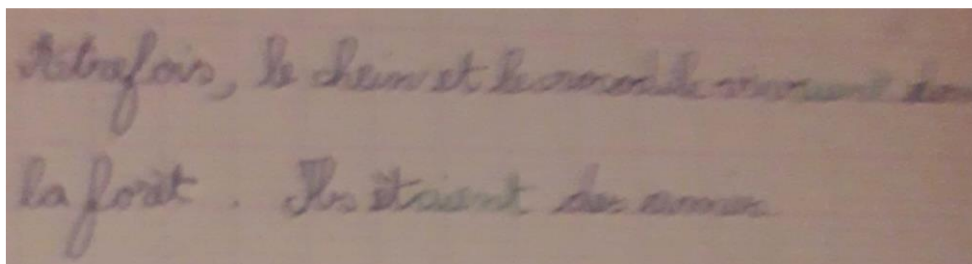 Autrafois, le chein et le vivaient dans
la forêt. Ils étaient des amies